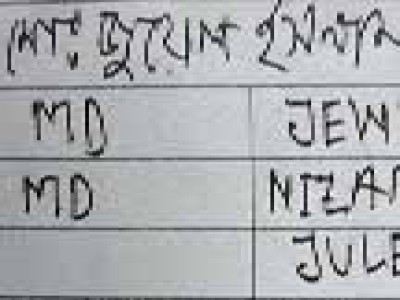 মোঃ জুয়েল ইসলাম
MD JEW
MD NIZA
JULE